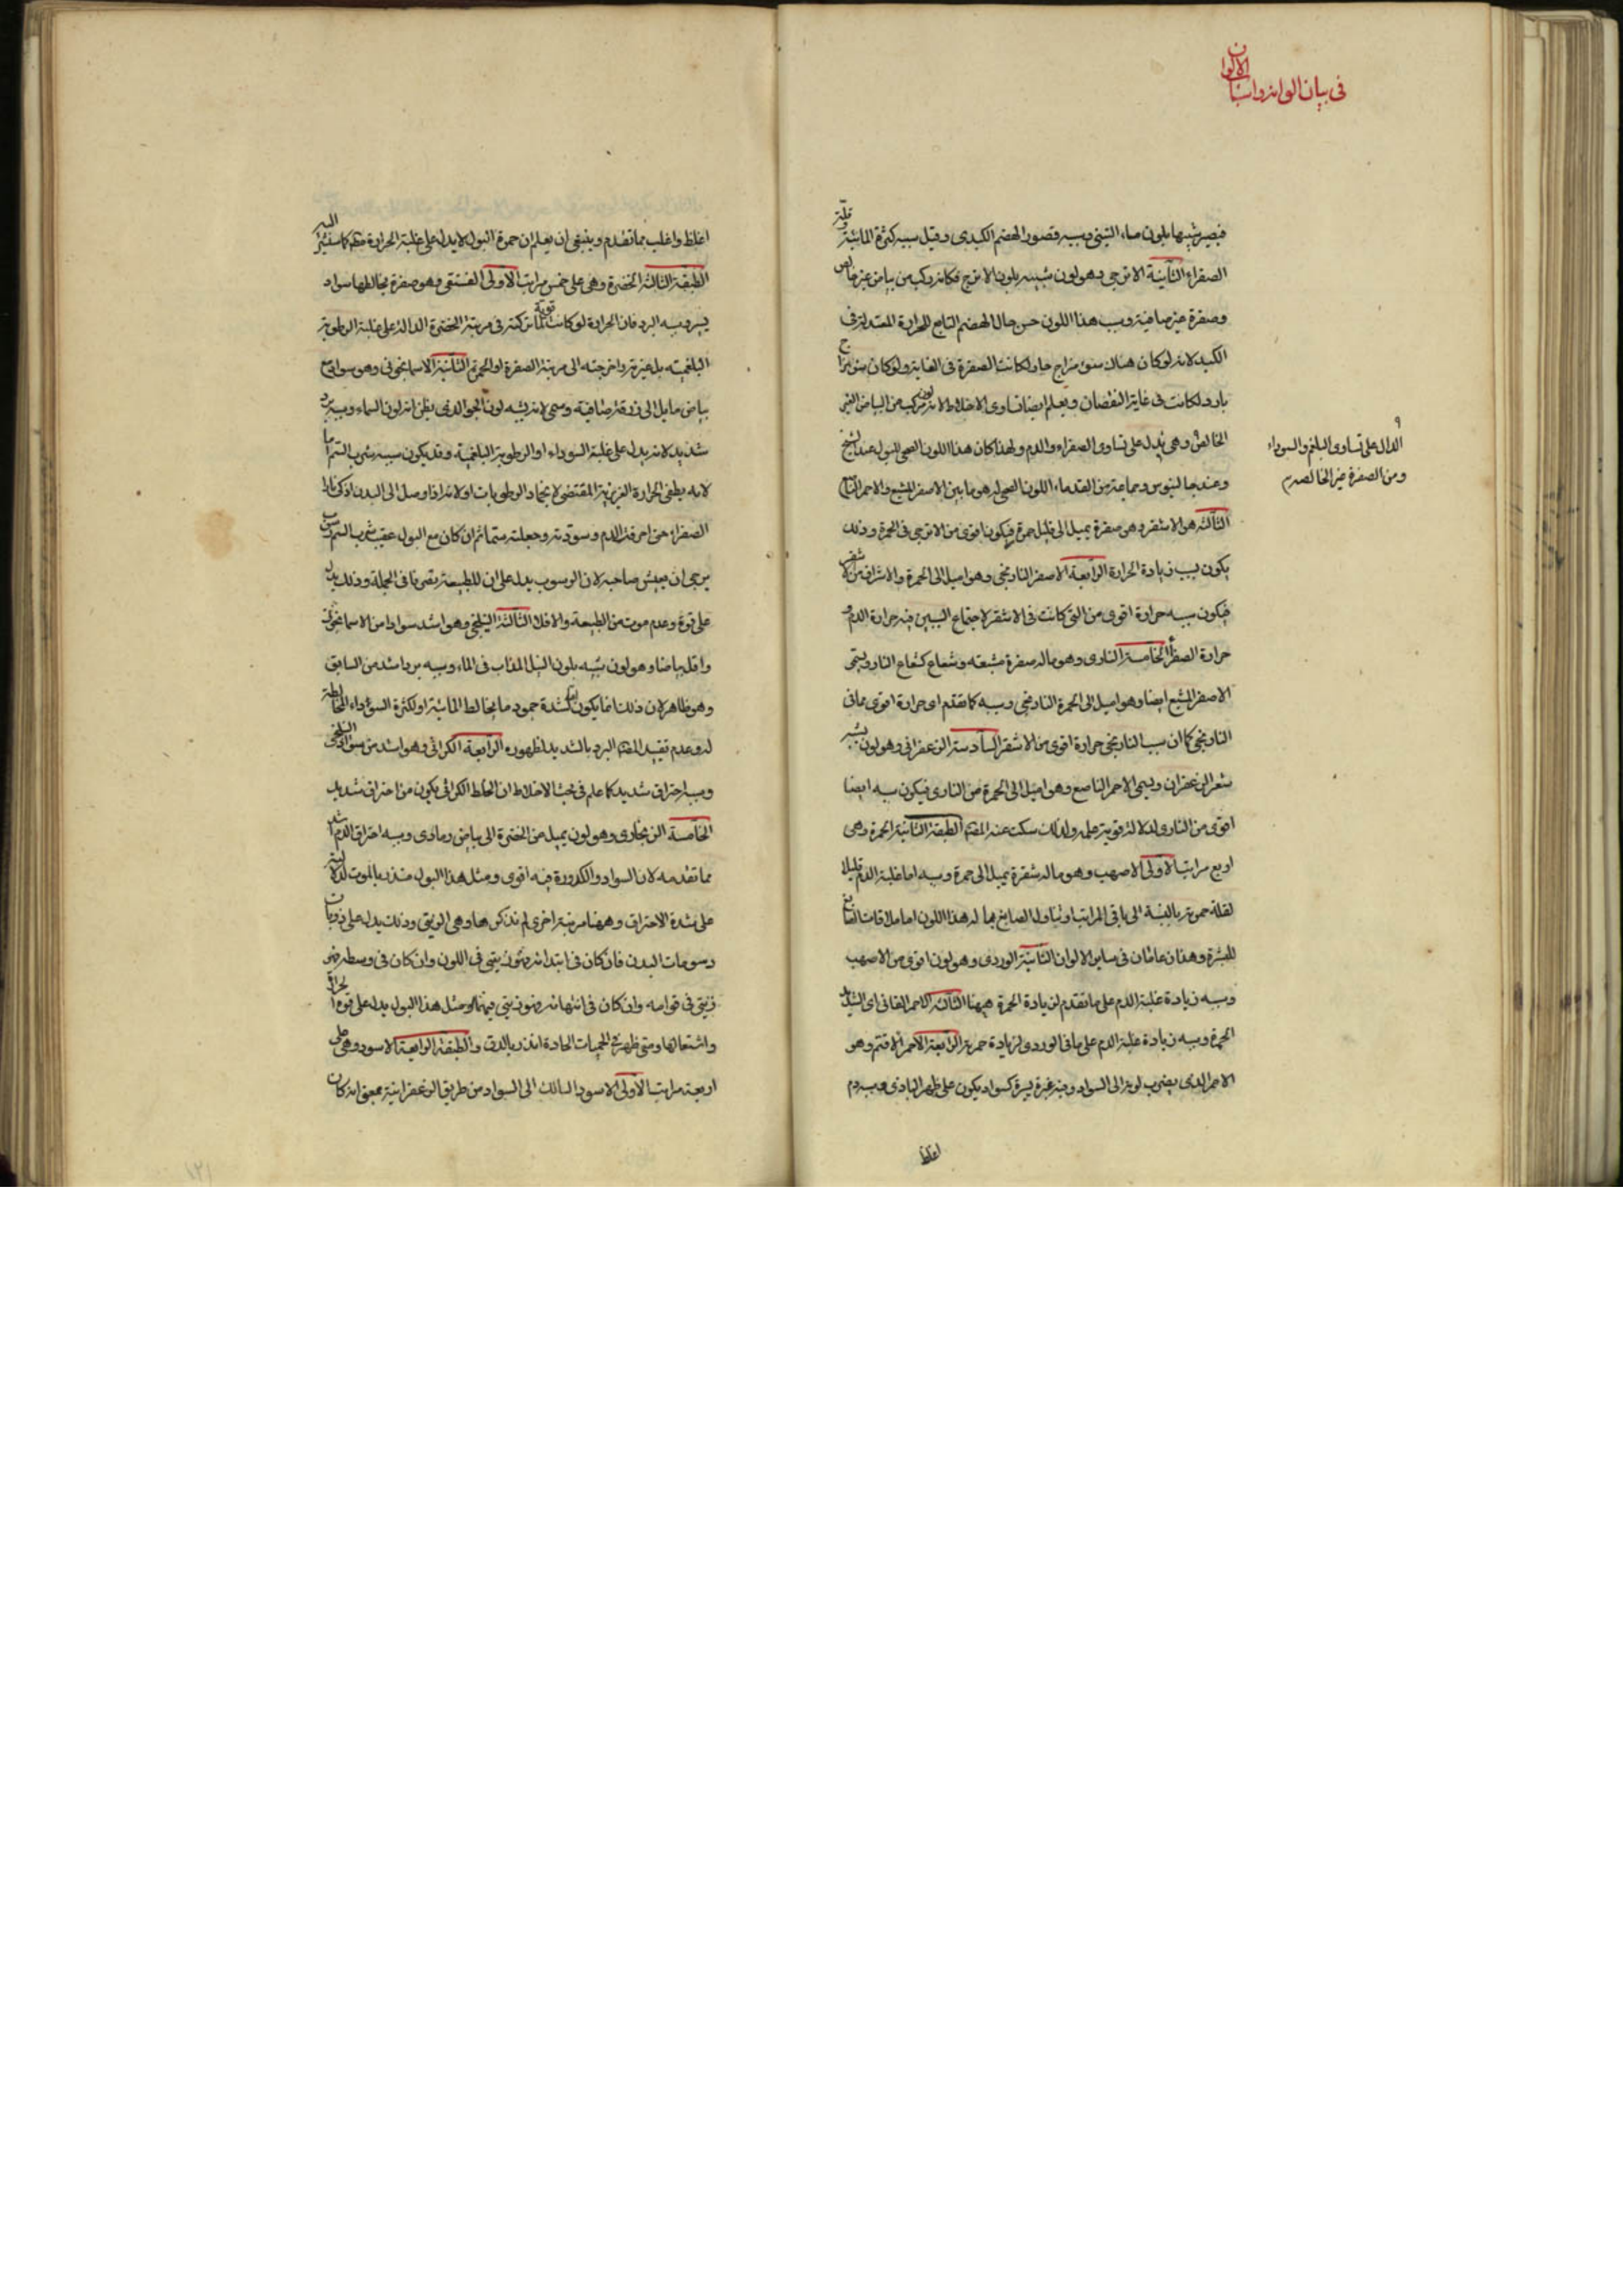 فى بيان الوانه واسباب الالوان
فيصير شبيها بلون ماء التبن وسببه قصور الهضم الكبدى وقيل سببه كثرة المائية وقلة
الصفراء الثانية الاترجى وهو لون شبيه بلون الاترج فكانه ركب من بياض غير خالص
وصفرة غير صافية وسبب هذا اللون حسن حال الهضم التابع للحرارة المعتدلة فى
الكبد لانه لو كان هناك سوء مزاج حار لكانت الصفرة فى الغاية ولو كان سوء مزاج
بارد لكانت فى غاية النقصان ويعلم ايضا تساوى الاخلاط لانه لون مركب من البياض الغير
الخالص وهى تدل على تساوى الصفراء والدم ولهذا كان هذا اللون الصحى للبول عند الشيخ
الدال على تساوى البلغم والسوداء
ومن الصفرة غير الخالصة م
وعند جالينوس وجماعة من القدماء اللون الصحى له هو ما بين الاصفر المشبع والاحمر الناصع
الثالثة هو الاشقر وهو صفرة يميل الى قليل حمرة فيكون اقوى من الاترجى فى الحمرة وذلك
يكون بسبب زيادة الحرارة الرابعة الاصفر النارنجى وهو اميل الى الحمرة والاشراق من الاشقر
فيكون سببه حرارة اقوى من التى كانت فى الاشقر لاجتماع السببين فيه حرارة الدم و
حرارة الصفراء الخامسة النارى وهو ماله صفرة مشبعة وشعاع كشعاع النار ويسمى
الاصفر المشبع ايضا وهو اميل الى الحمرة النارنجى وسببه كما تقدم اى حرارة اقوى مما فى
النارنجى كما ان سبب النارنجى حرارة اقوى من الاشقر السادسة الزعفرانى وهو لون يشبه
شعر الزعفران ويسمى الاحمر الناصع وهو اميل الى الحمرة من النارى فيكون سببه ايضا
اقوى من النارى لدلالة قوته عليه ولذلك سكت عنه المص الطبقة الثانية الحمرة وهى
اربع مراتب الاولى الاصهب وهو ماله شقرة يميل الى حمرة وسببه اما غلبة الدم قليلا
لقلة حمرته بالنسبة الى باقى المراتب او تناول الصابغ بما له هذا اللون اما ملاقات الصابغ
للبشرة وهذان عامان فى ساير الالوان الثانية الوردى وهو لون اقوى من الاصهب
وسببه زيادة غلبة الدم على ما تقدم لزيادة الحمرة ههنا الثالثة الاحمر القانى اى الشديد
الحمرة وسببه زيادة غلبة الدم على ما فى الوردى لزيادة حمرته الرابعة الاحمر الاقتم وهو
الاحمر الذى يضرب لونه الى السواد وفيه غبرة يسيرة كسواد يكون على ظهر البازى وسببه دم
اغلظ
اغلظ واغلب مما تقدم وينبغى ان يعلم ان حمرة البول لا يدل على غلبة الحرارة
الطبقة الثالثة الخضرة وهى على خمس مراتب الاولى الفستقى وهو صفرة يخالطها سواد
يسير وسببه البرد فان الحرارة لو كانت قوية لما تركته فى مرتبة الخضرة الدالة على غلبة الرطوبة
البلغمية بل غيرته واخرجته الى مرتبة الصفرة او الحمرة الثانية الاسمانجونى وهو سواد مع
بياض مايل الى زرقة صافية وسمى لانه يشبه لون الجو الذى يظن انه لون السماء وسببه برد
شديد لانه يدل على غلبة السوداء او الرطوبة البلغمية وقد يكون سببه شرب السم اما
لانه يطفى الحرارة الغريزية المقتضى لانجماد الرطوبات او لانه اذا وصل الى البدن اذكى نار
الصفراء حتى احرقت الدم وسودته وجعلته سما ثم ان كان مع البول عقيب شرب السم رسوب
يرجى ان يعيش صاحبه لان الرسوب يدل على ان للطبيعة تصرفا فى الجملة وذلك يدل
على قوة وعدم موت من الطبيعة والا فلا الثالثة النيلنجى وهو اشد سوادا من الاسمانجونى
واقل بياضا وهو لون يشبه بلون النيل المذاب فى الماء وسببه برد اشد من السابق
وهو ظاهر لان ذلك انما يكون لشدة جمود ما يخالط المائية او لكثرة السوداء المخالطة
له وعدم تقييد المص البرد بالشديد لظهوره الرابعة الكراثى وهو اشد من سواد النيلنجى
وسببه احتراق شديد كما علم فى بحث الاخلاط ان الخلط الكراثى يكون من احتراق شديد
الخامسة الزنجارى وهو لون يميل من الخضرة الى بياض رمادى وسببه احتراق الدم اشد
مما تقدمه لان السواد والكدورة فيه اقوى ومثل هذا البول منذر بالموت لدلالته
على شدة الاحتراق وههنا مرتبة اخرى لم نذكرها وهى الزيتى وذلك يدل على ذوبان
دسومات البدن فان كان فى ابتدائه فهو زيتى فى اللون وان كان فى وسطه فهو
زيتى فى قوامه وان كان فى انتهائه فهو زيتى فيهما ومثل هذا البول يدل على قوة الحرارة
واشتعالها ومتى ظهر فى الحميات الحادة انذر بالدق والطبقة الرابعة الاسود وهى على
اربعة مراتب الاولى الاسود السالك الى السواد من طريق الزعفرانية بمعنى انه كان
١٢١